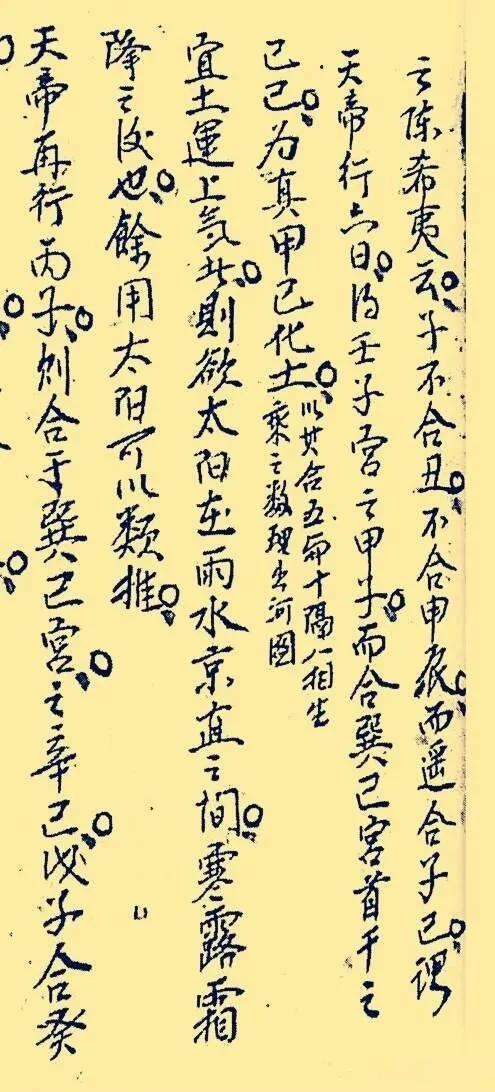 之陈希夷云子不合丑不合申辰而遥合子已谓
天帝行六日得壬子宫之甲子而合巽巳宫首千之
己巳为真甲己化土
以其合五而十隔八相生
乘之数理出河图
宜土運上氣此則欲太阳在雨水京直之间寒露霜
降之後也餘用太阳可以類推
天帝再行丙子则合于巽巳宫之辛巳戊子合癸